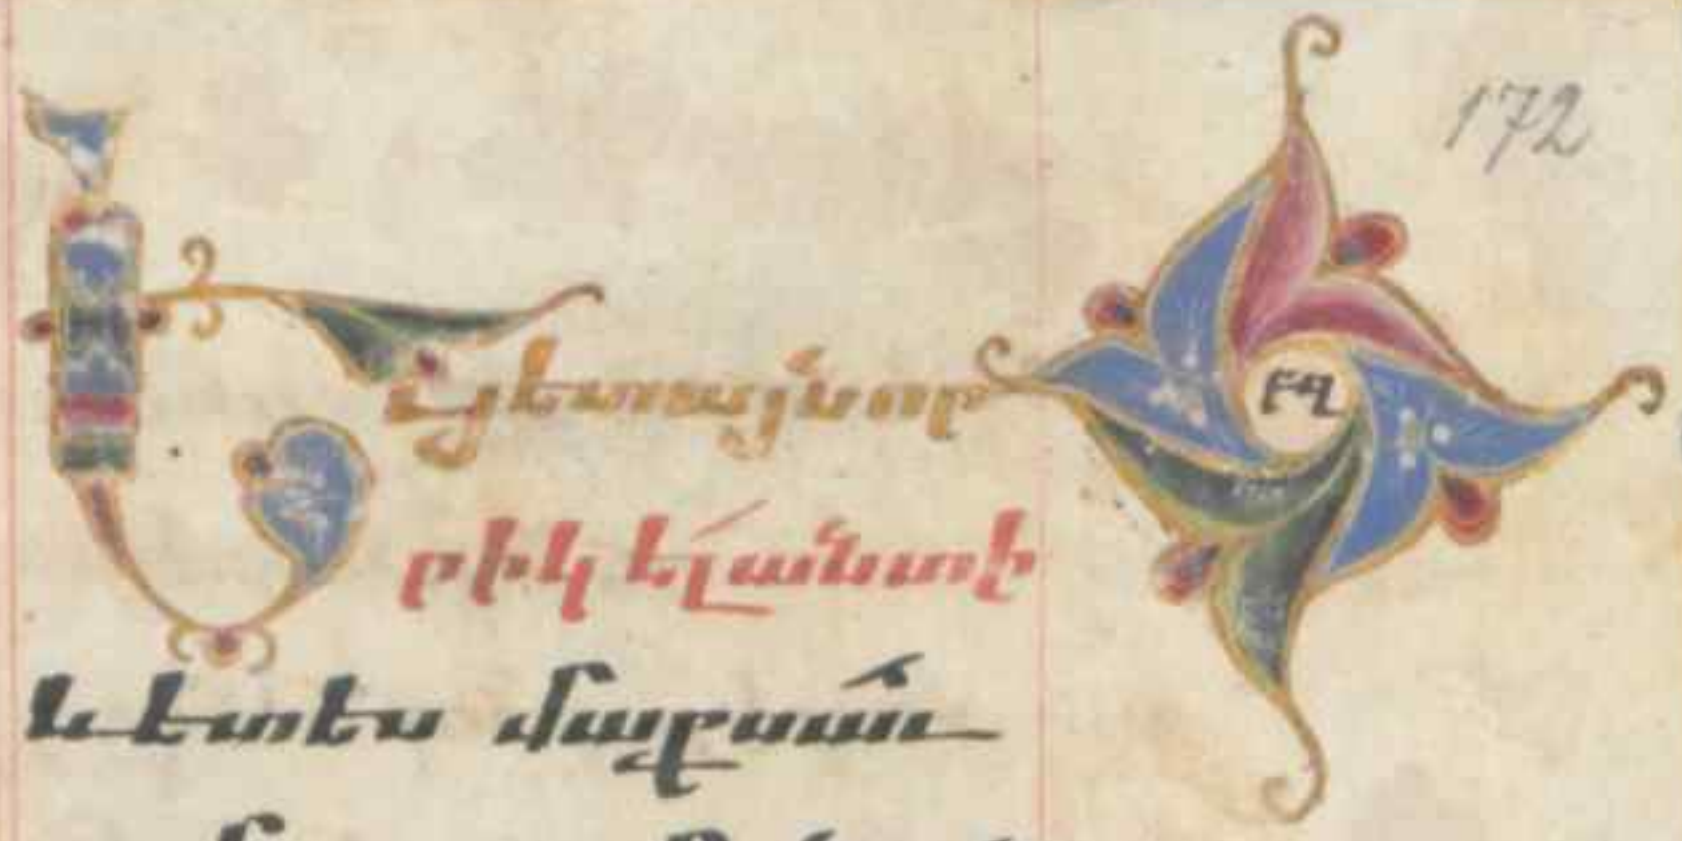 172
Եւ յետ այնոր
րիկ ել անտի
և ետես մաքսաւ